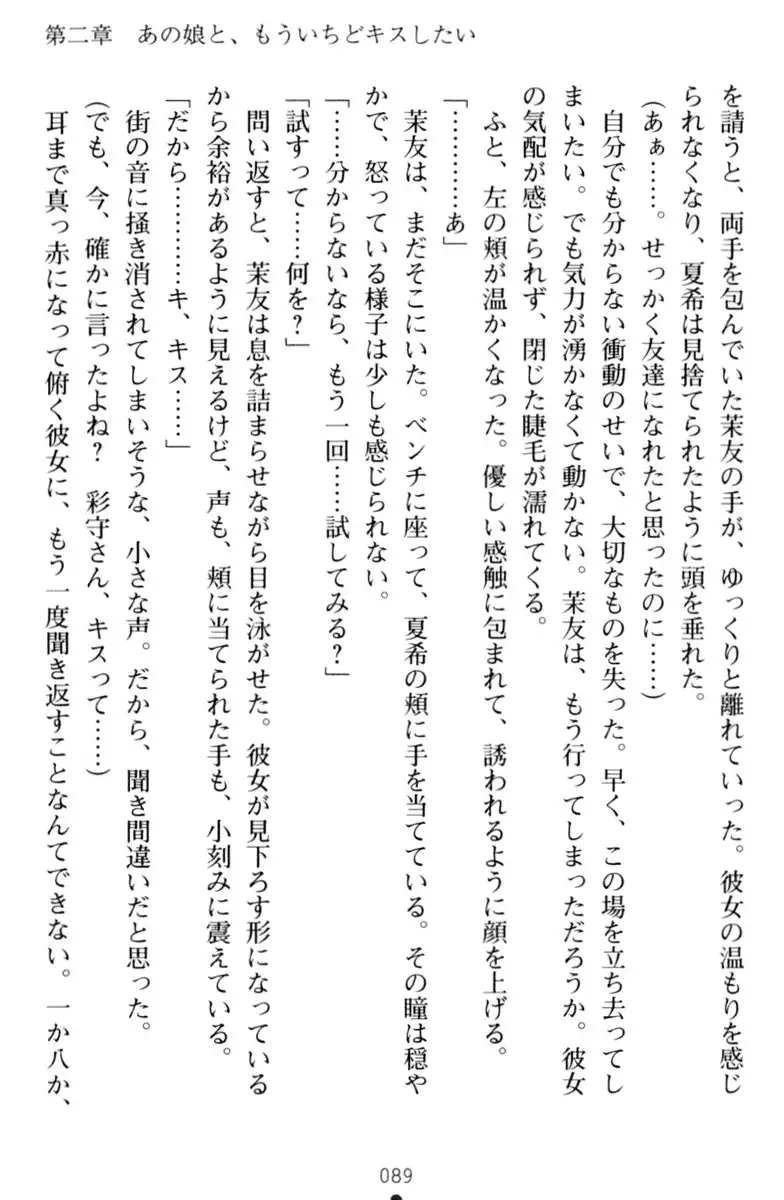 第二章　あの娘と、もういちどキスしたい
を請うと、両手を包んでいた茉友の手が、ゆっくりと離れていった。彼女の温もりを感じ
られなくなり、夏希は見捨てられたように頭を垂れた。
(あぁ……。せっかく友達になれたと思ったのに……)
自分でも分からない衝動のせいで、大切なものを失った。早く、この場を立ち去ってし
まいたい。でも気力が湧かなくて動かない。茉友は、もう行ってしまっただろうか。彼女
の気配が感じられず、閉じた睫毛が濡れてくる。
ふと、左の頬が温かくなった。優しい感触に包まれて、誘われるように顔を上げる。
「…………あ」
茉友は、まだそこにいた。ベンチに座って、夏希の頬に手を当てている。その瞳は穏や
かで、怒っている様子は少しも感じられない。
「……分からないなら、もう一回……試してみる？」
「試すって……何を？」
問い返すと、茉友は息を詰まらせながら目を泳がせた。彼女が見下ろす形になっている
から余裕があるように見えるけど、声も、頬に当てられた手も、小刻みに震えている。
「だから…………キ、キス……」
街の音に掻き消されてしまいそうな、小さな声。だから、聞き間違いだと思った。
(でも、今、確かに言ったよね？　彩守さん、キスって……)
耳まで真っ赤になって俯く彼女に、もう一度聞き返すことなんてできない。一か八か、
089